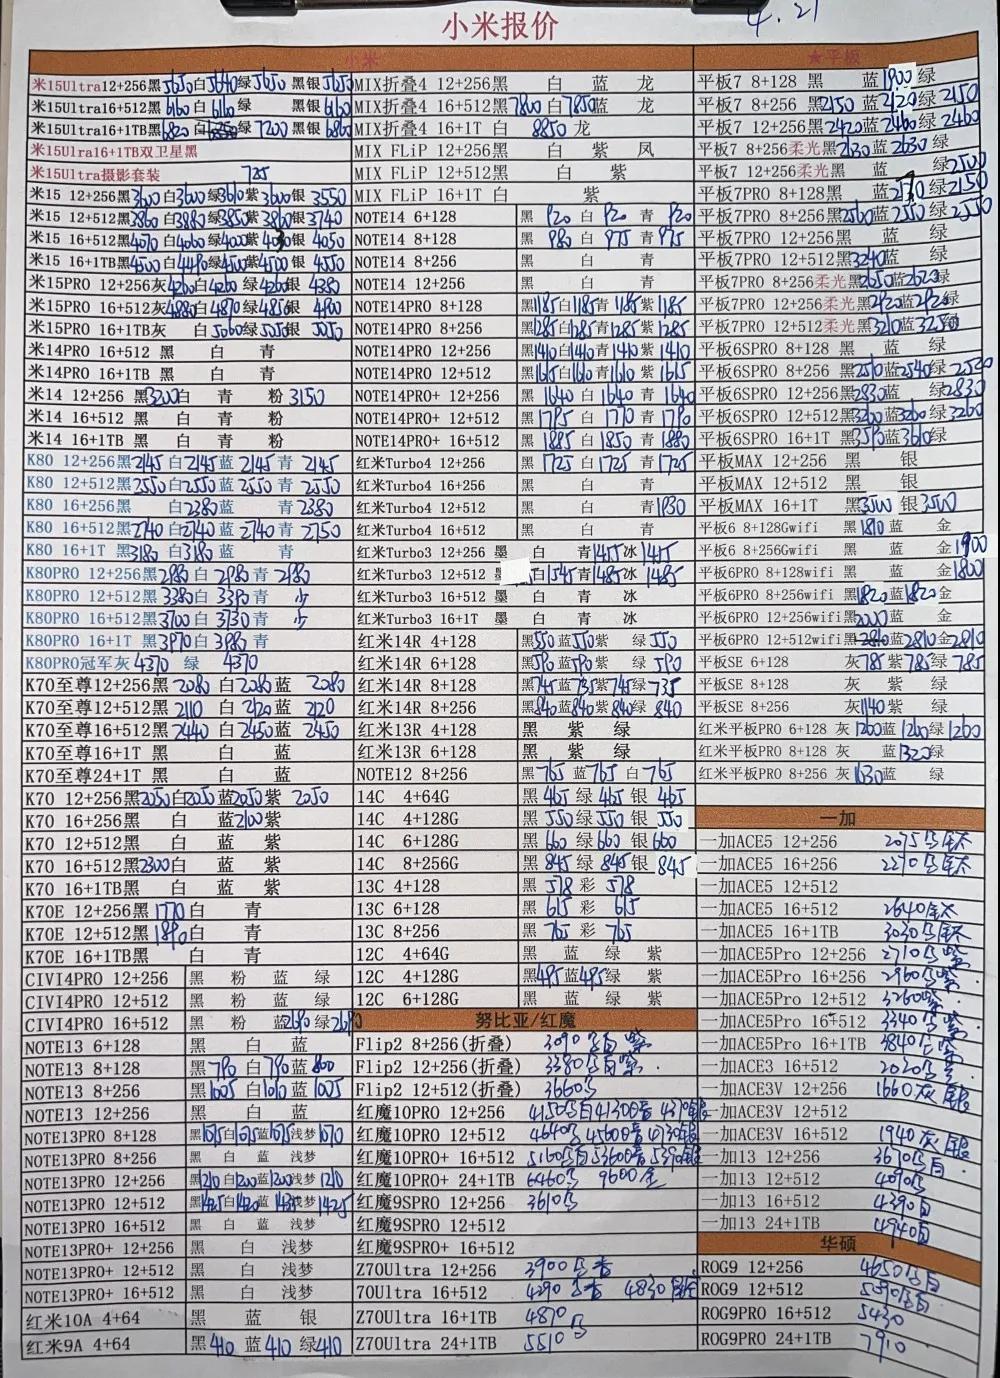 4.21
小米报价
小米
米15Ultra12+256黑5650白5640绿5650 黑银5650
米15Ultra16+512黑6160白6160绿 黑银6160
米15Ultra16+1TB黑6820白 绿7200黑银6860
米15Ulra16+1TB双卫星黑
米15Ultra摄影套装 725
米15 12+256黑3600白3600绿3610紫3600银3550
米15 12+512黑3860白3880绿3850紫3860银3740
米15 16+512黑4070白4060绿4000紫 银4050
米15 16+1TB黑4500白4490绿4500紫4500银4550
米15PRO 12+256灰4260白4260绿4260银4380
米15PRO 16+512灰4880白4870绿4850银4900
米15PRO 16+1TB灰 白5060绿5050银5050
米14PRO 16+512 黑 白 青
米14PRO 16+1TB 黑 白 青
米14 12+256 黑3200白 青 粉3150
米14 16+512 黑 白 青 粉
米14 16+1TB 黑 白 青 粉
K80 12+256黑2145白2145蓝2145青2145
K80 12+512黑2550白2550蓝2550青2550
K80 16+256黑 白2380蓝 青2380
K80 16+512黑2740白2740蓝2740青2750
K80 16+1T 黑3180白3180蓝 青
K80PRO 12+256黑2980白2980青2980
K80PRO 12+512黑3380白3390青 少
K80PRO 16+512黑3700白3730青 少
K80PRO 16+1T 黑3970白3980青
K80PRO冠军灰4370 绿 4370
K70至尊12+256黑2080白2080蓝2080
K70至尊12+512黑2110白2120蓝2120
K70至尊16+512黑2440白2450蓝2450
K70至尊16+1T 黑 白 蓝
K70至尊24+1T 黑 白 蓝
K70 12+256黑2050白2050蓝2050紫2050
K70 16+256黑 白 蓝2100紫
K70 12+512黑 白 蓝 紫
K70 16+512黑2300白 蓝 紫
K70 16+1TB黑 白 蓝 紫
K70E 12+256黑1770白 青
K70E 12+512黑1890白 青
K70E 16+1TB黑 白 青
CIVI4PRO 12+256 黑 粉 蓝 绿
CIVI4PRO 12+512 黑 粉 蓝 绿
CIVI4PRO 16+512 黑 粉 蓝2690绿2690
NOTE13 6+128 黑 白 蓝
NOTE13 8+128 黑790白790蓝800
NOTE13 8+256 黑1005白1010蓝1005
NOTE13 12+256 黑 白 蓝
NOTE13PRO 8+128 黑1075白1075蓝1075浅梦1070
NOTE13PRO 8+256 黑 白 蓝 浅梦
NOTE13PRO 12+256 黑1210白1200蓝1200浅梦1210
NOTE13PRO 12+512 黑1425白1420蓝1430浅梦1425
NOTE13PRO 16+512 黑 白 蓝 浅梦
NOTE13PRO+ 12+256 黑 白 浅梦
NOTE13PRO+ 12+512 黑 白 浅梦
NOTE13PRO+ 16+512 黑 白 浅梦
红米10A 4+64 黑 蓝 银
红米9A 4+64 黑410蓝410绿410
MIX折叠4 12+256黑 白 蓝 龙
MIX折叠4 16+512黑7800白7850蓝 龙
MIX折叠4 16+1T 白 8850 龙
MIX FLiP 12+256黑 白 紫 凤
MIX FLiP 12+512黑 白 紫
MIX FLiP 16+1T 白 紫
NOTE14 6+128 黑920白920青920
NOTE14 8+128 黑980白975青975
NOTE14 8+256 黑 白 青
NOTE14 12+256 黑 白 青
NOTE14PRO 8+128 黑1185白1185青1185紫1185
NOTE14PRO 8+256 黑1285白1285青1285紫1285
NOTE14PRO 12+256 黑1410白1410青1410紫1410
NOTE14PRO 12+512 黑1615白1610青1610紫1615
NOTE14PRO+ 12+256 黑1640白1640青1640
NOTE14PRO+ 12+512 黑1795白1770青1790
NOTE14PRO+ 16+512 黑1885白1850青1880
红米Turbo4 12+256 黑1725白1725青1725
红米Turbo4 16+256 黑 白 青
红米Turbo4 12+512 黑 白 青1930
红米Turbo4 16+512 黑 白 青
红米Turbo3 12+256 墨 白 青1415冰1415
红米Turbo3 12+512 白1545青1485冰1485
红米Turbo3 16+512 墨 白 青 冰
红米Turbo3 16+1TB 墨 白 青 冰
红米14R 4+128 黑550蓝550紫 绿550
红米14R 6+128 黑590蓝590紫 绿590
红米14R 8+128 黑745蓝735紫745绿735
红米14R 8+256 黑840蓝840紫840绿840
红米13R 4+128 黑 紫 绿
红米13R 6+128 黑 紫 绿
NOTE12 8+256 黑765蓝765白765
14C 4+64G 黑465绿465银465
14C 4+128G 黑550绿550银550
14C 6+128G 黑660绿660银660
14C 8+256G 黑845绿845银845
13C 4+128 黑578彩578
13C 6+128 黑615彩615
13C 8+256 黑765彩765
12C 4+64G 黑 蓝 绿 紫
12C 4+128G 黑495蓝485绿 紫
12C 6+128G 黑 蓝 绿 紫
努比亚/红魔
Flip2 8+256(折叠) 3090
Flip2 12+256(折叠) 3380
Flip2 12+512(折叠) 3660
红魔10PRO 12+256 4150 4130 4370
红魔10PRO 12+512 4640 4560
红魔10PRO+ 16+512 5160 5360 5390
红魔10PRO+ 24+1TB 6460 9600金
红魔9SPRO 12+256 3610
红魔9SPRO 12+512
红魔9SPRO+ 16+512
Z70Ultra 12+256 3900
70Ultra 16+512 4290 4830
Z70Ultra 16+1TB 4870
Z70Ultra 24+1TB 5510
★平板
平板7 8+128 黑 蓝1900绿
平板7 8+256 黑2150蓝2120绿2150
平板7 12+256黑2420蓝2460绿2460
平板7 8+256柔光黑2630蓝2630绿
平板7 12+256柔光黑 蓝 绿2500
平板7PRO 8+128黑 蓝 绿2150
平板7PRO 8+256黑2560蓝2550绿2550
平板7PRO 12+256黑 蓝 绿
平板7PRO 12+512黑3240蓝 绿
平板7PRO 8+256柔光黑2650蓝2620绿
平板7PRO 12+256柔光黑2920蓝2920绿
平板7PRO 12+512柔光黑3210蓝3250绿
平板6SPRO 8+128 黑 蓝 绿
平板6SPRO 8+256 黑2510蓝2540绿2520
平板6SPRO 12+256黑2830蓝 绿2830
平板6SPRO 12+512黑3200蓝3260绿3260
平板6SPRO 16+1T 黑3590蓝3610绿
平板MAX 12+256 黑 银
平板MAX 12+512 黑 银
平板MAX 16+1T 黑3500银3500
平板6 8+128Gwifi 黑1810蓝 金
平板6 8+256Gwifi 黑 蓝 金1900
平板6PRO 8+128wifi 黑 蓝 金1800
平板6PRO 8+256wifi 黑1820蓝1820金
平板6PRO 12+256wifi黑2000蓝 金
平板6PRO 12+512wifi黑2810蓝2810金2810
平板SE 6+128 灰785紫785绿785
平板SE 8+128 灰 紫 绿
平板SE 8+256 灰1140紫 绿
红米平板PRO 6+128 灰1260蓝1260绿1260
红米平板PRO 8+128 灰 蓝1320绿
红米平板PRO 8+256 灰1630蓝 绿
一加
一加ACE5 12+256 2075
一加ACE5 16+256 2270
一加ACE5 12+512
一加ACE5 16+512 2640
一加ACE5 16+1TB 3030
一加ACE5Pro 12+256 2710
一加ACE5Pro 16+256 2960
一加ACE5Pro 12+512 3260
一加ACE5Pro 16+512 3340
一加ACE5Pro 16+1TB 3840
一加ACE3 16+512 2020
一加ACE3V 12+256 1660灰
一加ACE3V 12+512
一加ACE3V 16+512 1940灰
一加13 12+256 3670
一加13 12+512 4090白
一加13 16+512 4390白
一加13 24+1TB 4940白
华硕
ROG9 12+256 4650
ROG9 12+512 5390
ROG9PRO 16+512 5430
ROG9PRO 24+1TB 7910